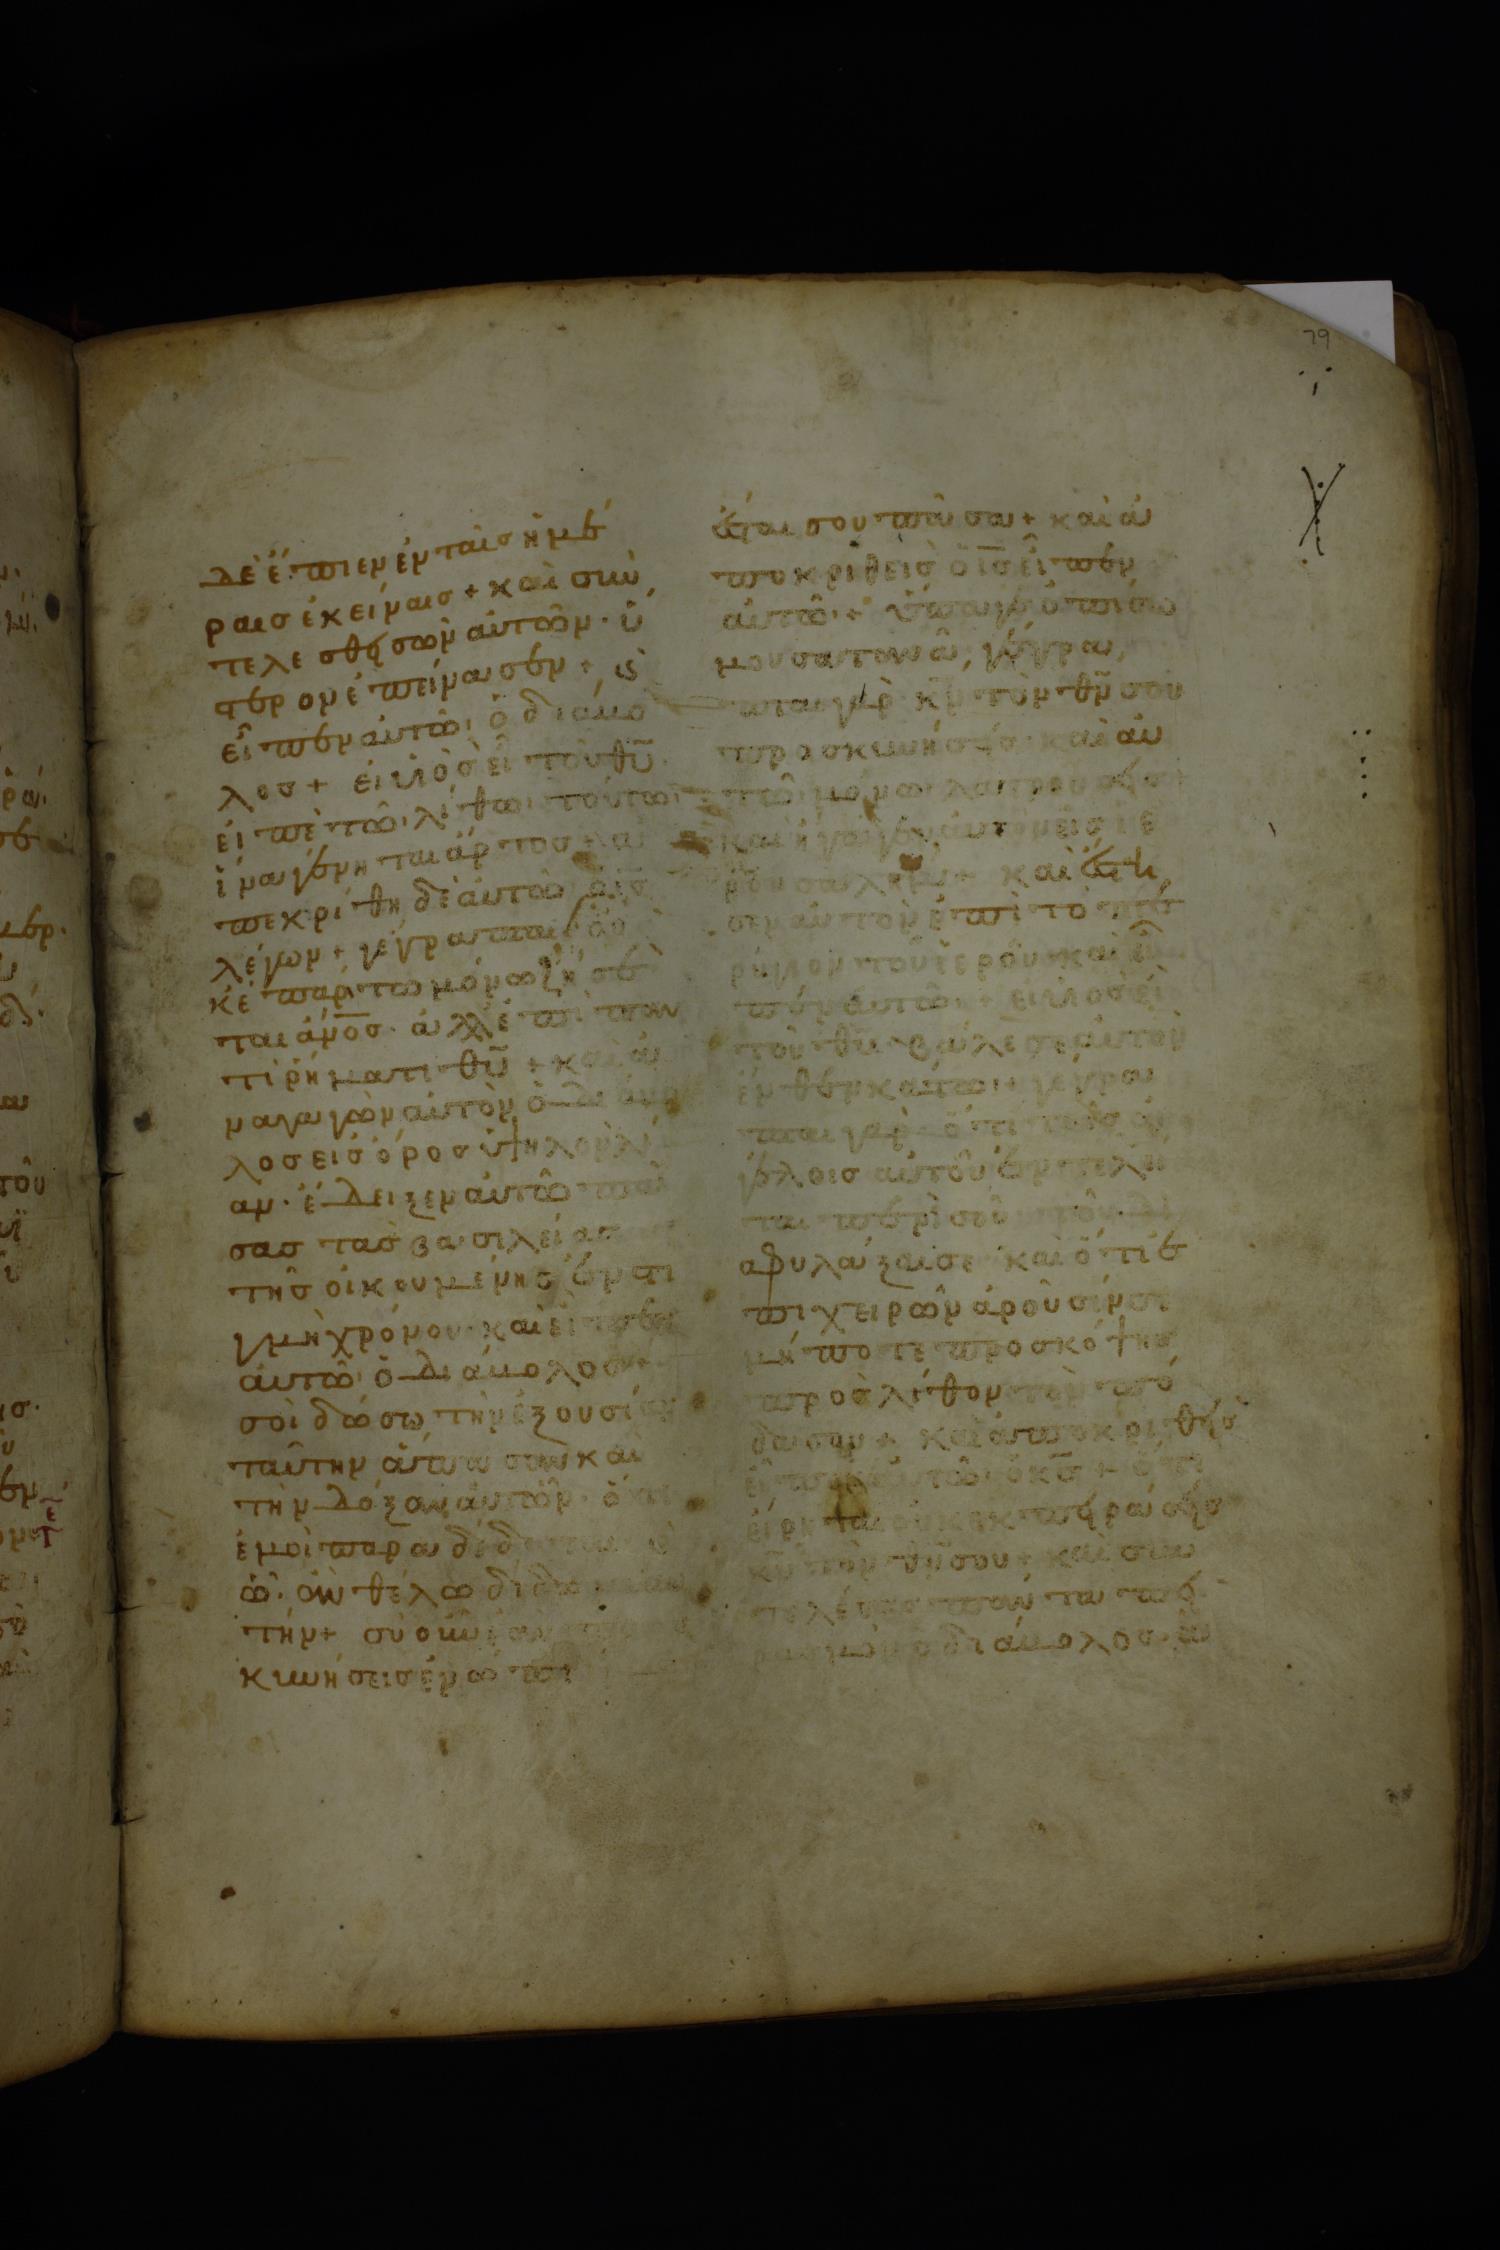 79
δὲ ἔπιεν ἐν ταῖς ἡμέ
ραις ἐκείναις + καὶ συν
τελεσθεισῶν αὐτῶν · ὕ
στερον ἐπείνασεν + κὶ
εἶπεν αὐτῶ · ὁ διάβο
λος + εἰ υἱὸς εἶ τοῦ θῦ
εἰπὲ τῶ λίθω τούτω
ἵνα γένηται ἄρτος + ἀ
πεκρίθη δὲ αὐτῶ ὁ ις
λέγων + γέγραπται ὅτι
οὐκ ἐπ ἄρτω μόνω ζήσε
ται ἀνος · ἀλλ ἐπὶ παν
τὶ ῥήματι θῦ + καὶ ἀ
ναγαγὼν αὐτὸν ὁ διάβο
λος εἰς ὄρος ὑψηλὸν λί
αν · ἔδειξεν αὐτῶ πά
σας τὰς βασιλείας
τῆς οἰκουμένης ἐν στι
γμῆ χρόνου · καὶ εἶπεν
αὐτῶ ὁ διάβολος +
σοὶ δώσω τὴν ἐξουσίαν
ταύτην ἅπασαν καὶ
τὴν δόξαν αὐτῶν · ὅτι
ἐμοὶ παραδέδοται
ὧ ἂν θέλω δίδωμι αὐ
τήν + σὺ οὖν ἐὰν προσ
κυνήσεις ἐνώπι
ἔσται σου πᾶσα + καὶ ἀ
ποκριθεὶς ὁ ις εἶπεν
αὐτῶ + ὕπαγε ὀπίσω
μου σατανᾶ, γέγρα
πται γὰρ κν τὸν θν σου
προσκυνήσεις · καὶ αὐ
τῶ μόνω λατρεύσεις +
καὶ ἤγαγεν αὐτὸν εἰς ιε
ρουσαλήμ + καὶ ἔστη
σεν αὐτὸν ἐπὶ τὸ πτε
ρύγιον τοῦ ἱεροῦ · καὶ εἶ
πεν αὐτῶ + εἰ υἱὸς εἶ
τοῦ θῦ βάλε σεαυτὸν
ἐντεῦθεν κάτω + γέγρα
πται γὰρ ὅτι τοῖς ἀγ
γέλοις αὐτοῦ ἐντελεῖ
ται περὶ σοῦ τοῦ δι
αφυλάξαι σε καὶ ὅτι ἐ
πὶ χειρῶν ἀροῦσίν σε
μήποτε προσκόψης
πρὸς λίθον τὸν πό
δα σου + καὶ ἀποκριθεὶς
εἶπεν αὐτῶ ὁ ις + ὅτι
εἴρηται οὐκ ἐκπειράσεις
κν τὸν θν σου + καὶ συν
τελέσας πάντα πει
ρασμὸν ὁ διάβολος · ἀ